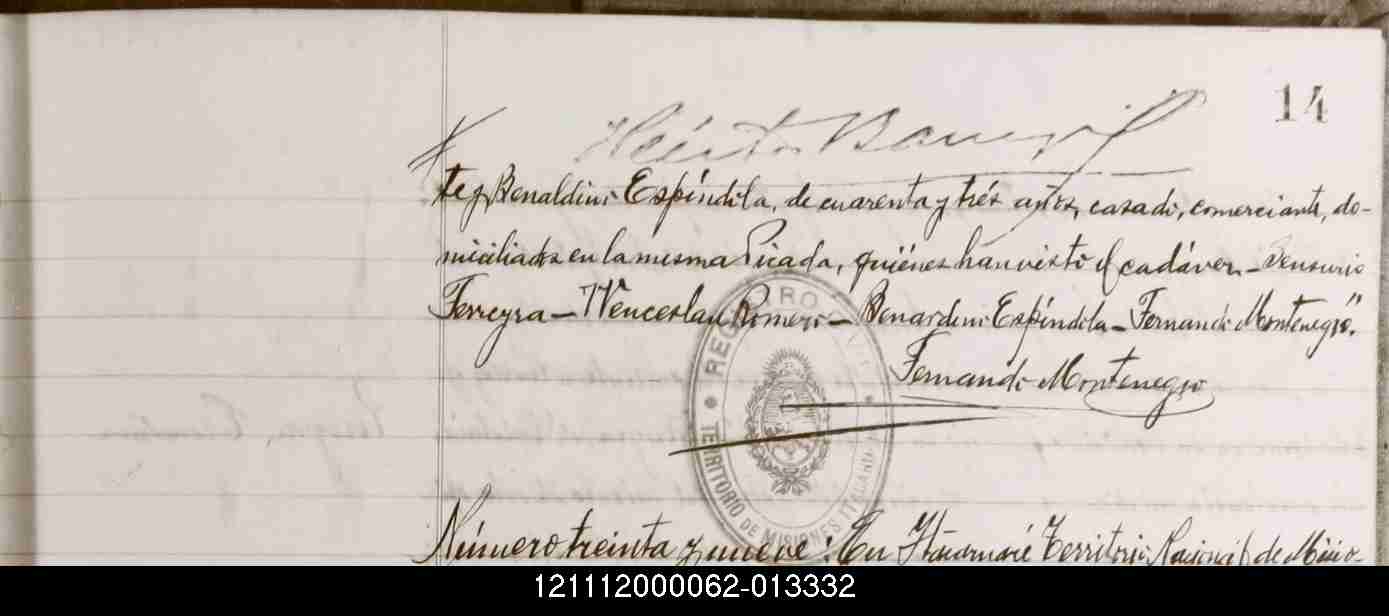 14
Héctor Barreyro
te y Benaldino Espíndola, de cuarenta y trés años, casado, comerciante, do-
miciliados en la misma Picada, quiénes han visto el cadáver_
Ferreyra_ Wenceslau Romero_ Benardino Espíndola_ Fernando Montenegro."
Fernando Montenegro
REGISTRO CIVIL
TERRITORIO DE MISIONES
Número treinta y nueve: En Itacaruaré Territorio Nacional de Misio-
121112000062-013332